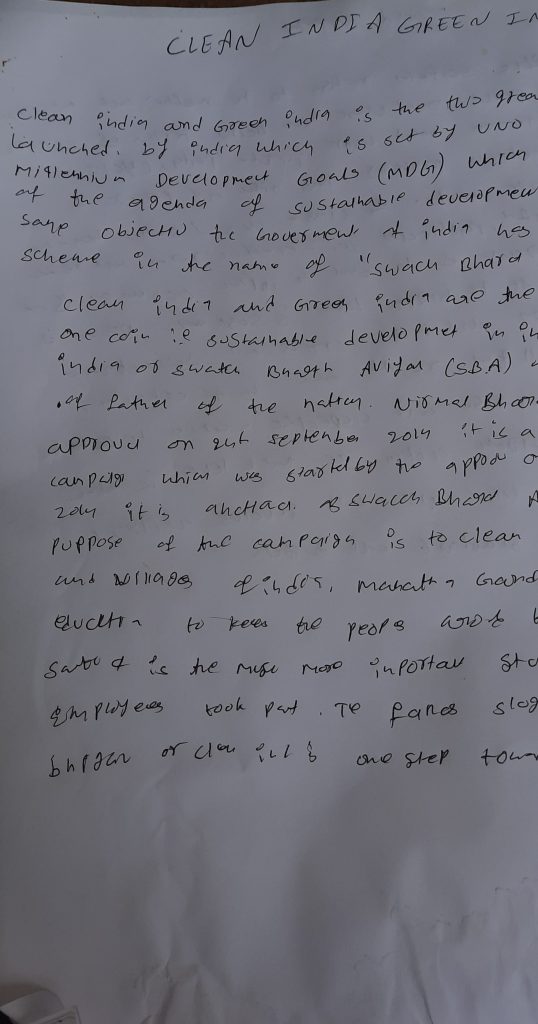 CLEAN INDIA GREEN IN
Clean india and Green india is the two grea
launched. by india which is set by UNO
Millennium Development Goals (MDG) which
of the agenda of sustainable developmen
same objectiv the Goverment of india has
scheme in the name of "swach Bhard
Clean india and Green india are the
one coin ie sustainable developmet in in
india or swatch Bhagth Aviyan (SBA)
of father of the nation. Nirmal Bhar
approud on 24t september 2014 it is a
campaign which was started by the
2014 it is Swacch Bhard A
puppose of the campaign is to clean
and villages of india, Mahatma Gand
education to keep the people
is the more inportan
employees took part. Te fames slog
or clean is one step towa